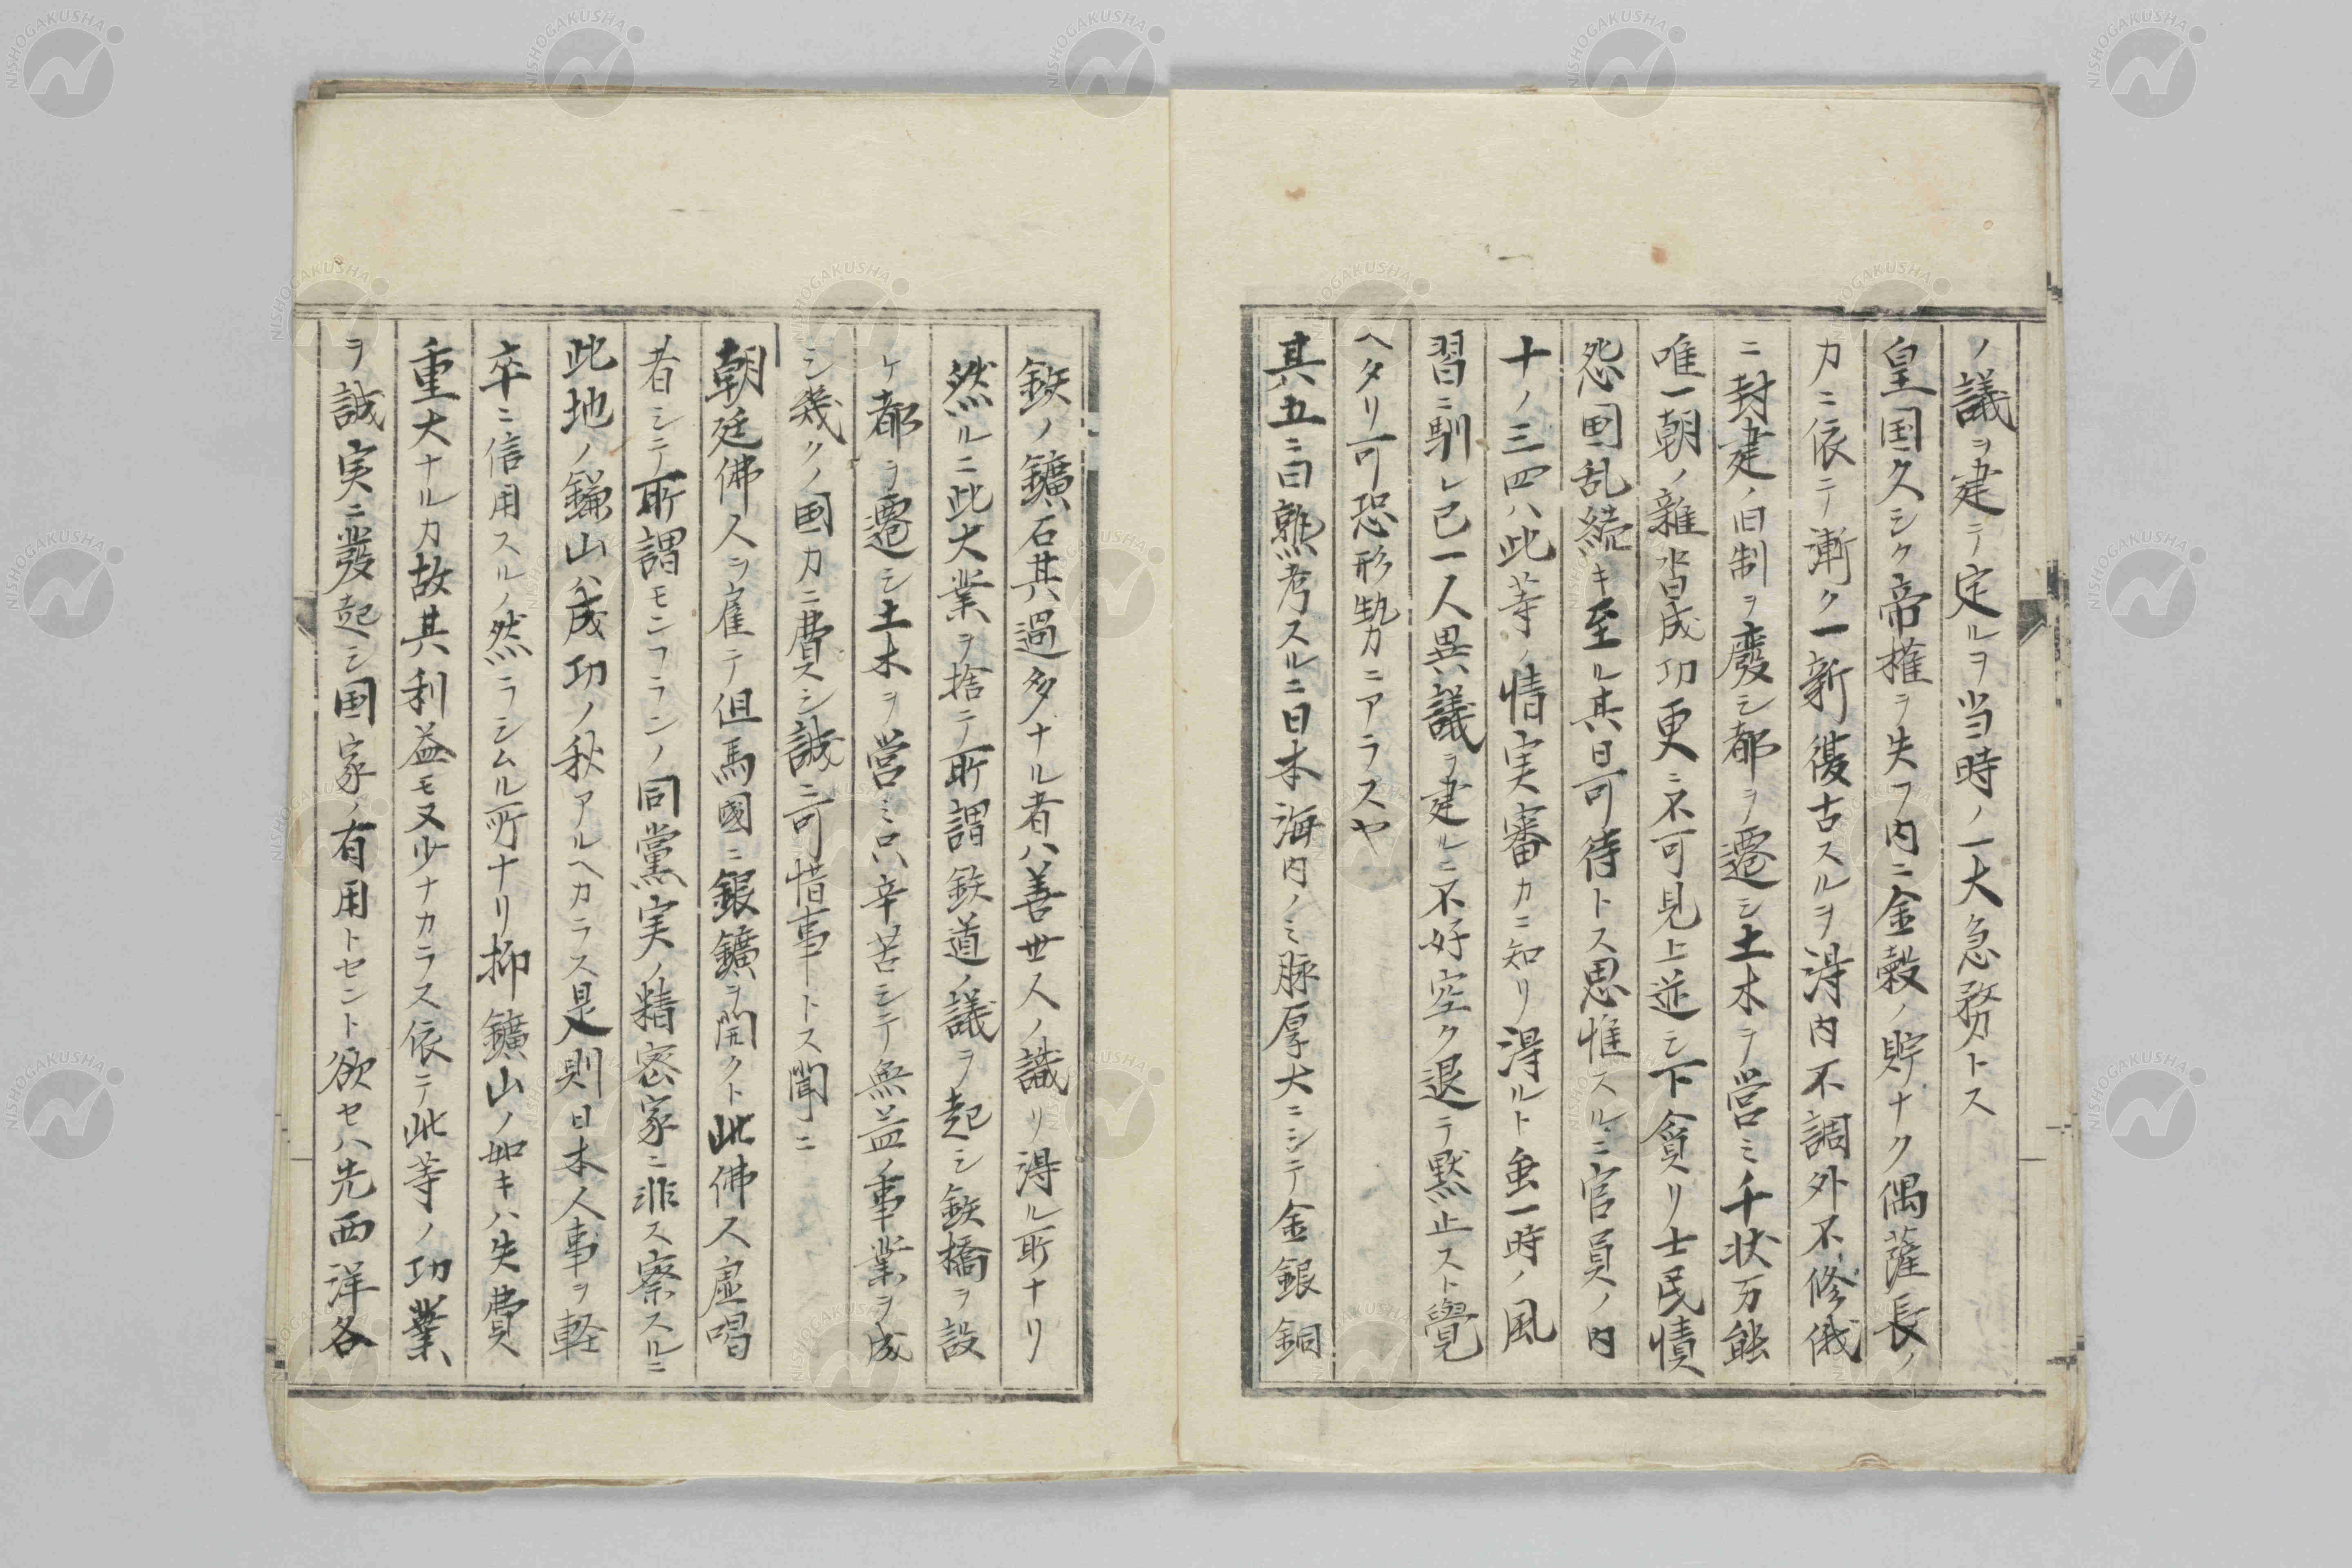 ノ議ヲ建テ定ルヲ当時ノ一大急務トス
皇国久シク帝権ヲ失フ内ニ金穀ノ貯ナク偶薩長ノ
力ニ依テ漸ク一新復古スルヲ得内不調外不修俄
ニ封建ノ旧制ヲ廃シ都ヲ遷シ土木ヲ営ミ千状万能
唯一朝ノ雜沓成功更ニ不可見上逆シ下貪リ士民憤
怨国乱続キ至ル其日可待トス思惟スルニ官員ノ内
十ノ三四ハ此等ノ情実審カニ知リ得ルト虽一時ノ風
習ニ馴レ已一人異議ヲ建ルニ不好空ク退テ黙止スト覺
ヘタリ可恐形勢カニアラスヤ
其五ニ曰熟考スルニ日本海内ノミ脉厚大ニシテ金銀銅
鉄ノ鑛石其過多ナル者ハ善世人ノ識リ得ル所ナリ
然ルニ此大業ヲ捨テ所謂鉄道ノ議ヲ起シ鉄橋ヲ設
ケ都ヲ遷シ土木ヲ営ミ只辛苦シテ無益ノ事業ヲ成
シ幾クノ国力ニ費シ誠ニ可惜事トス聞ニ
朝廷佛人ヲ雇テ但馬國ニ銀鑛ヲ開クト此佛人虚唱
者シテ所謂モンフランノ同黨実ノ精密家ニ非ス察スルニ
此地ノ鎌山ハ成功ノ秋アルヘカラス是則日本人事ヲ軽
卒ニ信用スルノ然ラシムル所ナリ抑鑛山ノ如キハ失費
重大ナルカ故其利益モ又少ナカラス依テ此等ノ功業
ヲ誠実ニ發起シ国家ノ有用トセント欲セハ先西洋各